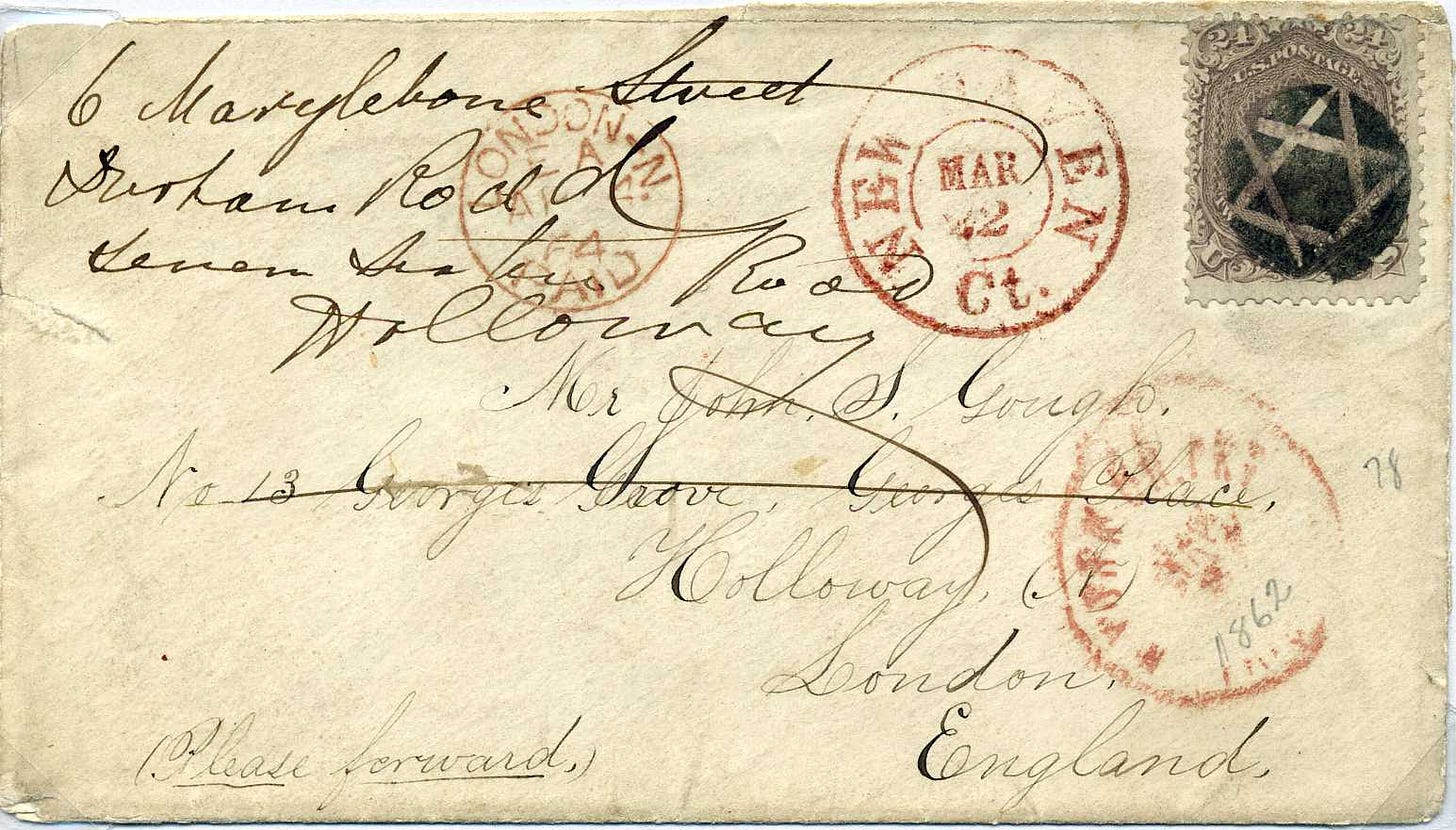 6 Marylebone Street
Durham Road
Seven Sisters Road
Holloway
Mr John. S. Gough.
No 13 Georges Grove, Georges Place,
Holloway. (N)
London.
England.
(Please forward.)
LONDON. N.
A
64
PAID
NEW HAVEN
MAR
22
Ct.
24 24
U.S. POSTAGE
U S
YORK
PKT
MAR
1862
78